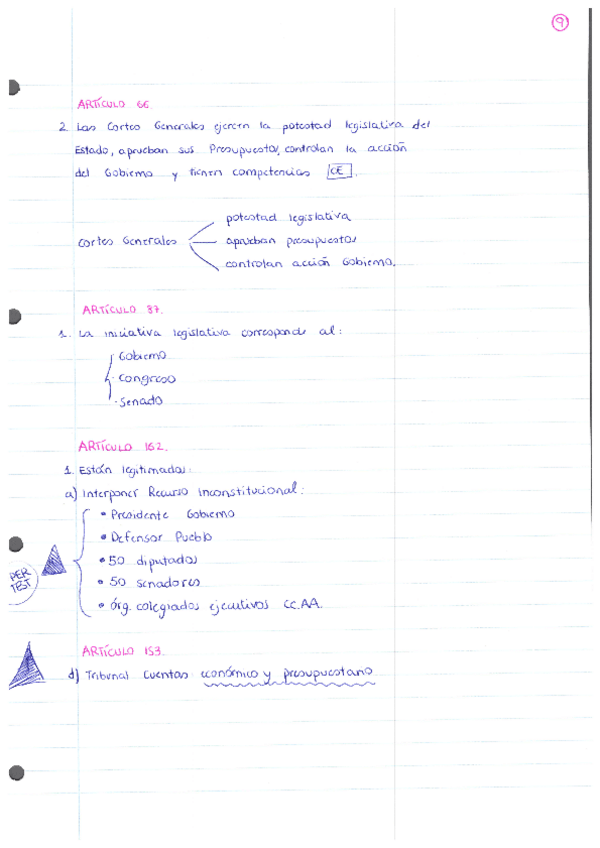 9
ARTÍCULO 66
2 Las Cortes Generales ejercen la potestad legislativa del
Estado, aprueban sus Presupuestos, controlan la acción
del Gobierno y tienen competencias CE.
Cortes Generales
potestad legislativa
aprueban presupuestos
controlan acción Gobierno.
ARTÍCULO 87.
1. La iniciativa legislativa corresponde al:
Gobierno
Congreso
Senado
ARTÍCULO 162.
1. Están legitimados:
a) Interponer Recurso Inconstitucional:
• Presidente Gobierno
• Defensor Pueblo
• 50 diputados
• 50 senadores
• órg. colegiados ejecutivos CC.AA.
PER
TEST
ARTÍCULO 153.
d) Tribunal Cuentas económico y presupuestario